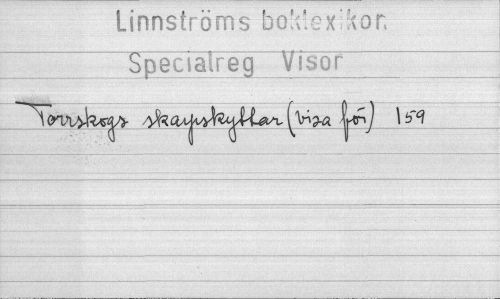 Linnströms boklexikon.
Specialreg Visor
Torrskogs skarpskyttar (visa för) 159